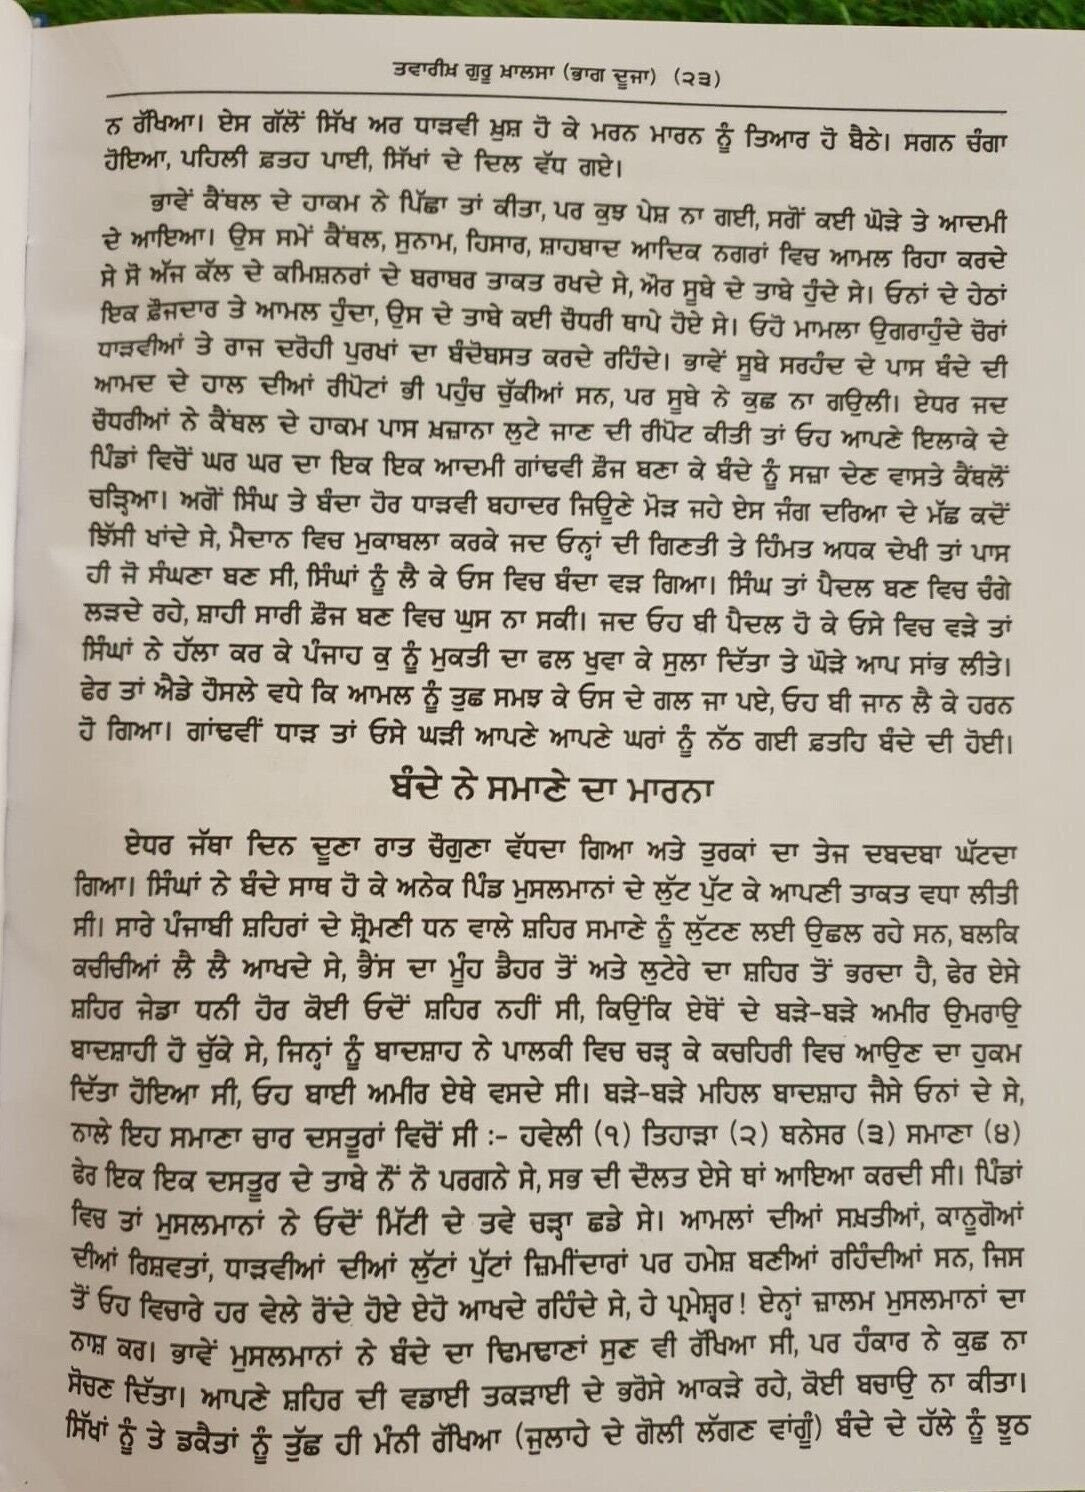 ਤਵਾਰੀਖ਼ ਗੁਰੂ ਖ਼ਾਲਸਾ (ਭਾਗ ਦੂਜਾ) (੨੩)
ਨ ਰੱਖਿਆ। ਏਸ ਗੱਲੋਂ ਸਿੱਖ ਅਰ ਧਾੜਵੀ ਖ਼ੁਸ਼ ਹੋ ਕੇ ਮਰਨ ਮਾਰਨ ਨੂੰ ਤਿਆਰ ਹੋ ਬੈਠੇ। ਸਗਨ ਚੰਗਾ
ਹੋਇਆ, ਪਹਿਲੀ ਫ਼ਤਹ ਪਾਈ, ਸਿੱਖਾਂ ਦੇ ਦਿਲ ਵੱਧ ਗਏ।
ਭਾਵੇਂ ਕੈਂਥਲ ਦੇ ਹਾਕਮ ਨੇ ਪਿੱਛਾ ਤਾਂ ਕੀਤਾ, ਪਰ ਕੁਝ ਪੇਸ਼ ਨਾ ਗਈ, ਸਗੋਂ ਕਈ ਘੋੜੇ ਤੇ ਆਦਮੀ
ਦੇ ਆਇਆ। ਉਸ ਸਮੇਂ ਕੈਂਥਲ, ਸੁਨਾਮ, ਹਿਸਾਰ, ਸ਼ਾਹਬਾਦ ਆਦਿਕ ਨਗਰਾਂ ਵਿਚ ਆਮਲ ਰਿਹਾ ਕਰਦੇ
ਸੇ ਸੋ ਅੱਜ ਕੱਲ ਦੇ ਕਮਿਸ਼ਨਰਾਂ ਦੇ ਬਰਾਬਰ ਤਾਕਤ ਰਖਦੇ ਸੇ, ਔਰ ਸੂਬੇ ਦੇ ਤਾਬੇ ਹੁੰਦੇ ਸੇ। ਓਨਾਂ ਦੇ ਹੇਠਾਂ
ਇਕ ਫ਼ੌਜਦਾਰ ਤੇ ਆਮਲ ਹੁੰਦਾ, ਉਸ ਦੇ ਤਾਬੇ ਕਈ ਚੌਧਰੀ ਥਾਪੇ ਹੋਏ ਸੇ। ਓਹੋ ਮਾਮਲਾ ਉਗਰਾਹੁੰਦੇ ਚੋਰਾਂ
ਧਾੜਵੀਆਂ ਤੇ ਰਾਜ ਦਰੋਹੀ ਪੁਰਖਾਂ ਦਾ ਬੰਦੋਬਸਤ ਕਰਦੇ ਰਹਿੰਦੇ। ਭਾਵੇਂ ਸੂਬੇ ਸਰਹੰਦ ਦੇ ਪਾਸ ਬੰਦੇ ਦੀ
ਆਮਦ ਦੇ ਹਾਲ ਦੀਆਂ ਰੀਪੋਟਾਂ ਭੀ ਪਹੁੰਚ ਚੁੱਕੀਆਂ ਸਨ, ਪਰ ਸੂਬੇ ਨੇ ਕੁਛ ਨਾ ਗਉਲੀ। ਏਧਰ ਜਦ
ਚੌਧਰੀਆਂ ਨੇ ਕੈਂਥਲ ਦੇ ਹਾਕਮ ਪਾਸ ਖ਼ਜ਼ਾਨਾ ਲੁਟੇ ਜਾਣ ਦੀ ਰੀਪੋਟ ਕੀਤੀ ਤਾਂ ਓਹ ਆਪਣੇ ਇਲਾਕੇ ਦੇ
ਪਿੰਡਾਂ ਵਿਚੋਂ ਘਰ ਘਰ ਦਾ ਇਕ ਇਕ ਆਦਮੀ ਗਾਂਢਵੀ ਫ਼ੌਜ ਬਣਾ ਕੇ ਬੰਦੇ ਨੂੰ ਸਜ਼ਾ ਦੇਣ ਵਾਸਤੇ ਕੈਂਥਲੋਂ
ਚੜ੍ਹਿਆ। ਅਗੋਂ ਸਿੰਘ ਤੇ ਬੰਦਾ ਹੋਰ ਧਾੜਵੀ ਬਹਾਦਰ ਜਿਊਣੇ ਮੋੜ ਜਹੇ ਏਸ ਜੰਗ ਦਰਿਆ ਦੇ ਮੱਛ ਕਦੋਂ
ਝਿੱਸੀ ਖਾਂਦੇ ਸੇ, ਮੈਦਾਨ ਵਿਚ ਮੁਕਾਬਲਾ ਕਰਕੇ ਜਦ ਓਨ੍ਹਾਂ ਦੀ ਗਿਣਤੀ ਤੇ ਹਿੰਮਤ ਅਧਕ ਦੇਖੀ ਤਾਂ ਪਾਸ
ਹੀ ਜੋ ਸੰਘਣਾ ਬਣ ਸੀ, ਸਿੰਘਾਂ ਨੂੰ ਲੈ ਕੇ ਓਸ ਵਿਚ ਬੰਦਾ ਵੜ ਗਿਆ। ਸਿੰਘ ਤਾਂ ਪੈਦਲ ਬਣ ਵਿਚ ਚੰਗੇ
ਲੜਦੇ ਰਹੇ, ਸ਼ਾਹੀ ਸਾਰੀ ਫ਼ੌਜ ਬਣ ਵਿਚ ਘੁਸ ਨਾ ਸਕੀ। ਜਦ ਓਹ ਬੀ ਪੈਦਲ ਹੋ ਕੇ ਓਸੇ ਵਿਚ ਵੜੇ ਤਾਂ
ਸਿੰਘਾਂ ਨੇ ਹੱਲਾ ਕਰ ਕੇ ਪੰਜਾਹ ਕੁ ਨੂੰ ਮੁਕਤੀ ਦਾ ਫਲ ਖੁਵਾ ਕੇ ਸੁਲਾ ਦਿੱਤਾ ਤੇ ਘੋੜੇ ਆਪ ਸਾਂਭ ਲੀਤੇ।
ਫੇਰ ਤਾਂ ਐਡੇ ਹੌਸਲੇ ਵਧੇ ਕਿ ਆਮਲ ਨੂੰ ਤੁਛ ਸਮਝ ਕੇ ਓਸ ਦੇ ਗਲ ਜਾ ਪਏ, ਓਹ ਬੀ ਜਾਨ ਲੈ ਕੇ ਹਰਨ
ਹੋ ਗਿਆ। ਗਾਂਢਵੀਂ ਧਾੜ ਤਾਂ ਓਸੇ ਘੜੀ ਆਪਣੇ ਆਪਣੇ ਘਰਾਂ ਨੂੰ ਨੱਠ ਗਈ ਫ਼ਤਹਿ ਬੰਦੇ ਦੀ ਹੋਈ।
ਬੰਦੇ ਨੇ ਸਮਾਣੇ ਦਾ ਮਾਰਨਾ
ਏਧਰ ਜੱਥਾ ਦਿਨ ਦੂਣਾ ਰਾਤ ਚੌਗੁਣਾ ਵੱਧਦਾ ਗਿਆ ਅਤੇ ਤੁਰਕਾਂ ਦਾ ਤੇਜ ਦਬਦਬਾ ਘੱਟਦਾ
ਗਿਆ। ਸਿੰਘਾਂ ਨੇ ਬੰਦੇ ਸਾਥ ਹੋ ਕੇ ਅਨੇਕ ਪਿੰਡ ਮੁਸਲਮਾਨਾਂ ਦੇ ਲੁੱਟ ਪੁੱਟ ਕੇ ਆਪਣੀ ਤਾਕਤ ਵਧਾ ਲੀਤੀ
ਸੀ। ਸਾਰੇ ਪੰਜਾਬੀ ਸ਼ਹਿਰਾਂ ਦੇ ਸ਼੍ਰੋਮਣੀ ਧਨ ਵਾਲੇ ਸ਼ਹਿਰ ਸਮਾਣੇ ਨੂੰ ਲੁੱਟਣ ਲਈ ਉਛਲ ਰਹੇ ਸਨ, ਬਲਕਿ
ਕਚੀਚੀਆਂ ਲੈ ਲੈ ਆਖਦੇ ਸੇ, ਭੈਂਸ ਦਾ ਮੂੰਹ ਡੈਹਰ ਤੋਂ ਅਤੇ ਲੁਟੇਰੇ ਦਾ ਸ਼ਹਿਰ ਤੋਂ ਭਰਦਾ ਹੈ, ਫੇਰ ਏਸੇ
ਸ਼ਹਿਰ ਜੇਡਾ ਧਨੀ ਹੋਰ ਕੋਈ ਓਦੋਂ ਸ਼ਹਿਰ ਨਹੀਂ ਸੀ, ਕਿਉਂਕਿ ਏਥੋਂ ਦੇ ਬੜੇ-ਬੜੇ ਅਮੀਰ ਉਮਰਾਉ
ਬਾਦਸ਼ਾਹੀ ਹੋ ਚੁੱਕੇ ਸੇ, ਜਿਨ੍ਹਾਂ ਨੂੰ ਬਾਦਸ਼ਾਹ ਨੇ ਪਾਲਕੀ ਵਿਚ ਚੜ੍ਹ ਕੇ ਕਚਹਿਰੀ ਵਿਚ ਆਉਣ ਦਾ ਹੁਕਮ
ਦਿੱਤਾ ਹੋਇਆ ਸੀ, ਓਹ ਬਾਈ ਅਮੀਰ ਏਥੇ ਵਸਦੇ ਸੀ। ਬੜੇ-ਬੜੇ ਮਹਿਲ ਬਾਦਸ਼ਾਹ ਜੈਸੇ ਓਨਾਂ ਦੇ ਸੇ,
ਨਾਲੇ ਇਹ ਸਮਾਣਾ ਚਾਰ ਦਸਤੂਰਾਂ ਵਿਚੋਂ ਸੀ :- ਹਵੇਲੀ (੧) ਤਿਹਾੜਾ (੨) ਥਨੇਸਰ (੩) ਸਮਾਣਾ (੪)
ਫੇਰ ਇਕ ਇਕ ਦਸਤੂਰ ਦੇ ਤਾਬੇ ਨੌਂ ਨੋ ਪਰਗਨੇ ਸੇ, ਸਭ ਦੀ ਦੌਲਤ ਏਸੇ ਥਾਂ ਆਇਆ ਕਰਦੀ ਸੀ। ਪਿੰਡਾਂ
ਵਿਚ ਤਾਂ ਮੁਸਲਮਾਨਾਂ ਨੇ ਓਦੋਂ ਮਿੱਟੀ ਦੇ ਤਵੇ ਚੜ੍ਹਾ ਛਡੇ ਸੇ। ਆਮਲਾਂ ਦੀਆਂ ਸਖ਼ਤੀਆਂ, ਕਾਨੂਗੋਆਂ
ਦੀਆਂ ਰਿਸ਼ਵਤਾਂ, ਧਾੜਵੀਆਂ ਦੀਆਂ ਲੁੱਟਾਂ ਪੁੱਟਾਂ ਜ਼ਿਮੀਂਦਾਰਾਂ ਪਰ ਹਮੇਸ਼ ਬਣੀਆਂ ਰਹਿੰਦੀਆਂ ਸਨ, ਜਿਸ
ਤੋਂ ਓਹ ਵਿਚਾਰੇ ਹਰ ਵੇਲੇ ਰੋਂਦੇ ਹੋਏ ਏਹੋ ਆਖਦੇ ਰਹਿੰਦੇ ਸੇ, ਹੇ ਪ੍ਰਮੇਸ਼੍ਵਰ! ਏਨ੍ਹਾਂ ਜ਼ਾਲਮ ਮੁਸਲਮਾਨਾਂ ਦਾ
ਨਾਸ਼ ਕਰ। ਭਾਵੇਂ ਮੁਸਲਮਾਨਾਂ ਨੇ ਬੰਦੇ ਦਾ ਢਿਮਢਾਣਾਂ ਸੁਣ ਵੀ ਰੱਖਿਆ ਸੀ, ਪਰ ਹੰਕਾਰ ਨੇ ਕੁਛ ਨਾ
ਸੋਚਣ ਦਿੱਤਾ। ਆਪਣੇ ਸ਼ਹਿਰ ਦੀ ਵਡਾਈ ਤਕੜਾਈ ਦੇ ਭਰੋਸੇ ਆਕੜੇ ਰਹੇ, ਕੋਈ ਬਚਾਉ ਨਾ ਕੀਤਾ।
ਸਿੱਖਾਂ ਨੂੰ ਤੇ ਡਕੈਤਾਂ ਨੂੰ ਤੁੱਛ ਹੀ ਮੰਨੀ ਰੱਖਿਆ (ਜੁਲਾਹੇ ਦੇ ਗੋਲੀ ਲੱਗਣ ਵਾਂਗੂੰ) ਬੰਦੇ ਦੇ ਹੱਲੇ ਨੂੰ ਝੂਠ